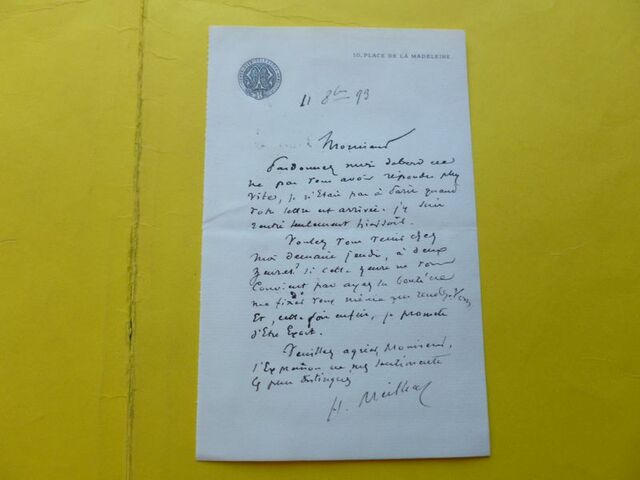 10, PLACE DE LA MADELEINE.
11 8bre 93
Monsieur
Pardonnez moi d'abord de
ne pas vous avoir répondu plus
vite, je n'étais pas à Paris quand
votre lettre est arrivée. j'y suis
rentré seulement hier soir.
Voulez vous venir chez
moi demain jeudi, à deux
heures? si cette heure ne vous
convient pas ayez la bonté de
me fixer vous même un rendez-vous
Et, cette fois enfin, je promets
d'être Exact.
Veuillez agréer, Monsieur,
l'Expression de mes sentiments
les plus distingués
H. Meilhac